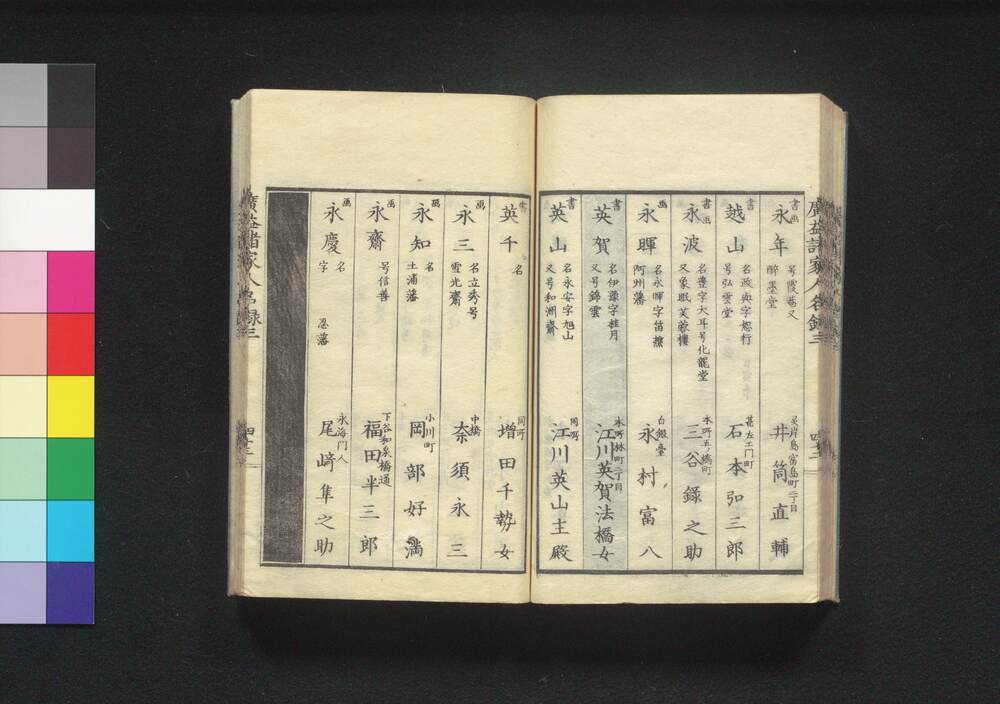 廣益諸家人名録三
四十二
書画
永年
号霞菴又
醉墨堂
井筒直輔
書
越山
名政典字恕行
号弘雲堂
甚左エ門町
石本弘三郎
書画
永波
名豊字大耳号化龍堂
又象眠芙蓉樓
本所五ノ橋町
三谷錄之助
画
永暉
名永暉字笛
阿州藩
白銀臺
永村富八
書
英賀
名伊藻字桂月
又号錦雲
本所林町二丁目
江川英賀法橋女
書
英山
名永安字旭山
又号和洲齋
同所
江川英山主殿
書
英千
名
同所
増田千勢女
画
永三
名立秀号
雪光齋
中橋
奈須永三
画
永知
名
土浦藩
小川町
岡部好満
画
永齋
号信善
下谷和泉橋通
福田半三郎
画
永慶
名
字
忍藩
永海門人
尾﨑隼之助
廣益諸家人名録三
四十三